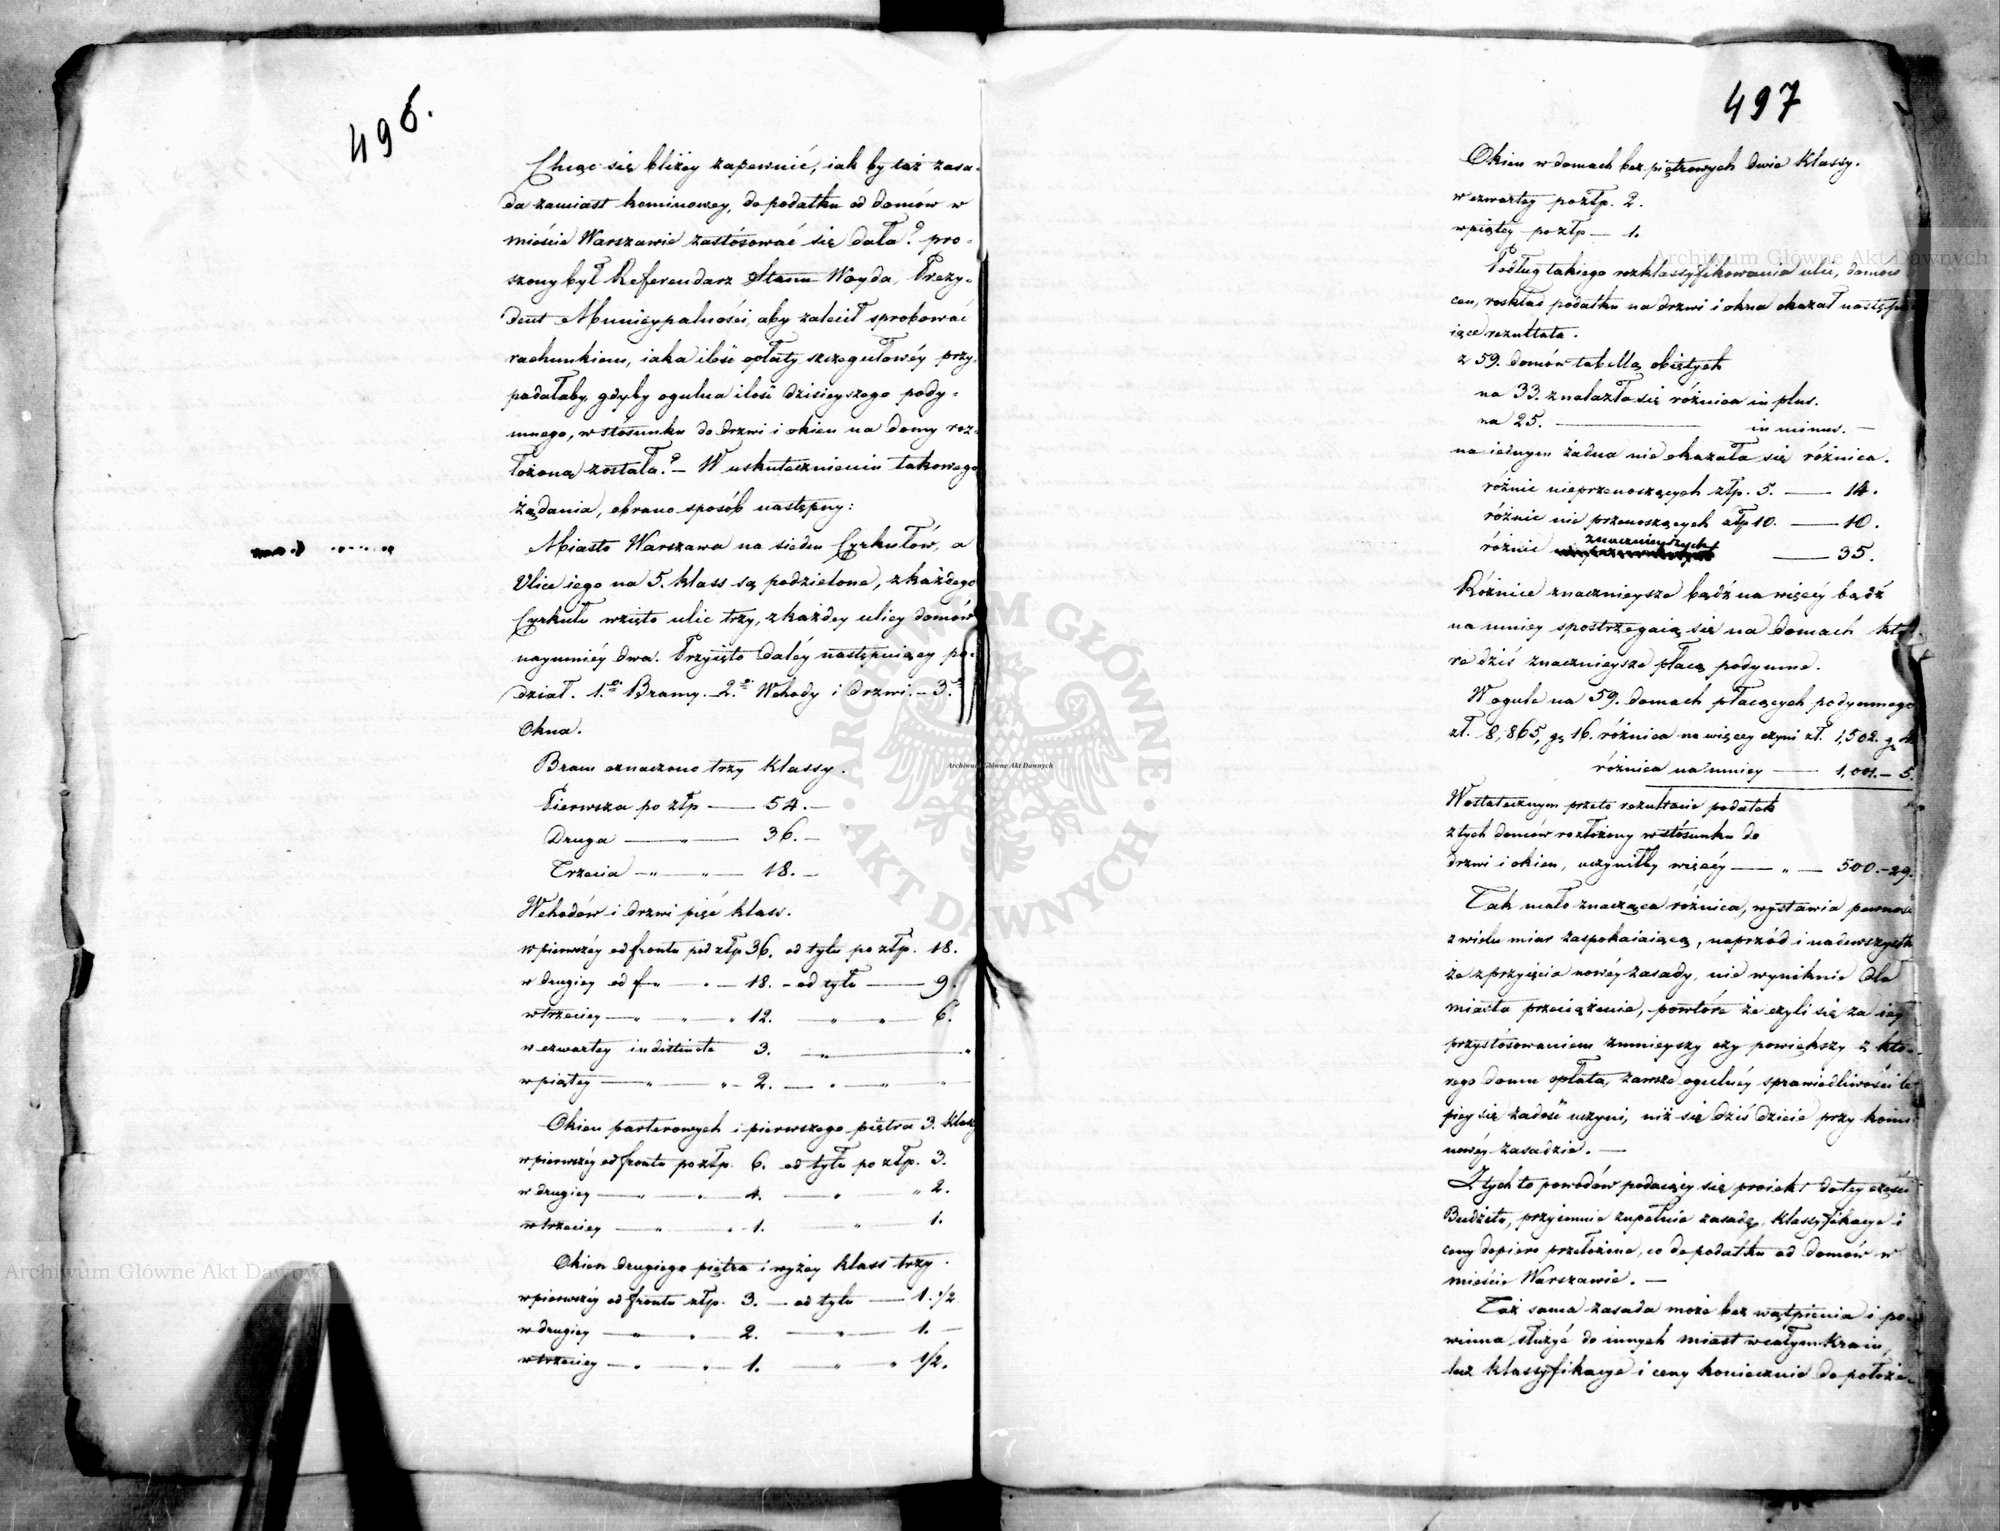 496.
Chcąc się bliżey zapewnić, iak by taż zasa-
da zamiast kominowey, do podatku od domów w
mieście Warszawie zastósować się dała? pro-
szony był Referendarz Stanu Woyda, Prezy-
dent Municypalności, aby zalecił sprobować
rachunkiem, iaka ilość opłaty szczegułowéy przy-
padałaby, gdyby ogulna ilość dzisieyszego pody-
mnego, w stósunku do drzwi i okien na domy roz-
łożoną została? – W uskutecznieniu takowego
żądania, obrano sposób następny:
Miasto Warszawa na siedm Cyrkułów, a
Ulice iego na 5. klass są podzielone, z każdego
Cyrkułu wzięto ulic trzy, z każdey ulicy domów
naymniéy dwa. Przyięto daléy następuiący po-
dział. 1.o Bramy. – 2.o Wchody i drzwi. – 3.o
Okna.
Bram oznaczono trzy klassy.
Pierwsza po złp — 54. –
Druga — " — 36. –
Trzecia — " — " — 18. –
Wchodów i drzwi pięć klass.
w pierwszéy od frontu pod złp 36. od tyłu po złp. 18.
w drugiey od f — " — 18. – od tyłu — 9.
w trzeciey — " — " — " 12. — " — " — 6.
w czwartey indistincte 3. — " — "
w piątey — " — " – 2. — " — " —
Okien parterowych i pierwszego piętra 3. klas
w pierwszéy od frontu po złp. 6. od tyłu po złp. 3.
w drugiey — " — 4. — " — " 2.
w trzeciey — " — " 1. — " — 1.
Okien drugiego piętra i wyżey klass trzy.
w pierwszéy od frontu złp. 3. — od tyłu — 1. 1/2
w drugiey — " — 2. — " — 1. —
w trzeciey — " — " — 1. — " — " 1/2.
497
Okien w domach bez piętrowych dwie klassy.
w czwartey po złp. 2.
w piątey po złp — 1.
Podług takiego rozklassyfikowania ulic, domów
cen, roskład podatku na drzwi i okna okazał następu-
iące rezultata.
z 59. domów tabellą obiętych
na 33. znalazła się różnica in plus.
na 25. — in minus. —
na iednym żadna nie okazała się różnica.
różnic nieprzenoszących złp. 5. — 14.
różnic nie przenoszących złp 10. — 10.
różnic znacznieyszych — 35.
Różnice znacznieysze bądź na więcéy bądź
na mniey spostrzegaią się na domach któ-
re dziś znacznieysze płacą podymne.
W ogule na 59. domach płacących podymnego
zł. 8,865, gr 16. różnica na więcey czyni zł. 1,502. gr 4.
różnica na mniey — 1,001. – 5.
W ostatecznym przeto rezultacie podatek
z tych domów rozłożony w stósunku do
drzwi i okien, uczyniłby więcéy — " — 500. – 29.
Tak mało znacząca różnica, wystawia pewność
z wielu miar zaspokaiaiącą, naprzód i nadewszystko
że z przyięcia nowéy zasady, nie wyniknie dla
miasta przeciążenie, powtóre że czyli się za iey
przystósowaniem zmnieyszy czy powiększy z któ-
rego domu opłata, zawsze ogulnéy sprawiedliwości le-
piey się zadość uczyni, niż się dziś dzieie przy komi-
nowéy zasadzie. —
Z tych to powodów podaiący się proiekt do tey części
Budżetu, przyiemnie zupełnie zasadę, klassyfikacye i
ceny dopiero przełożone, co do podatku od domów w
mieście Warszawie. —
Taż sama zasada może bez wątpienia i po-
winna służyć do innych miast w całym Kraiu,
lecz klassyfikacye i ceny koniecznie do położe-
Archiwum Główne Akt Dawnych
Archiwum Główne Akt Dawnych
Archiwum Główne Akt Dawnych
ARCHIWUM GŁÓWNE · AKT DAWNYCH ·